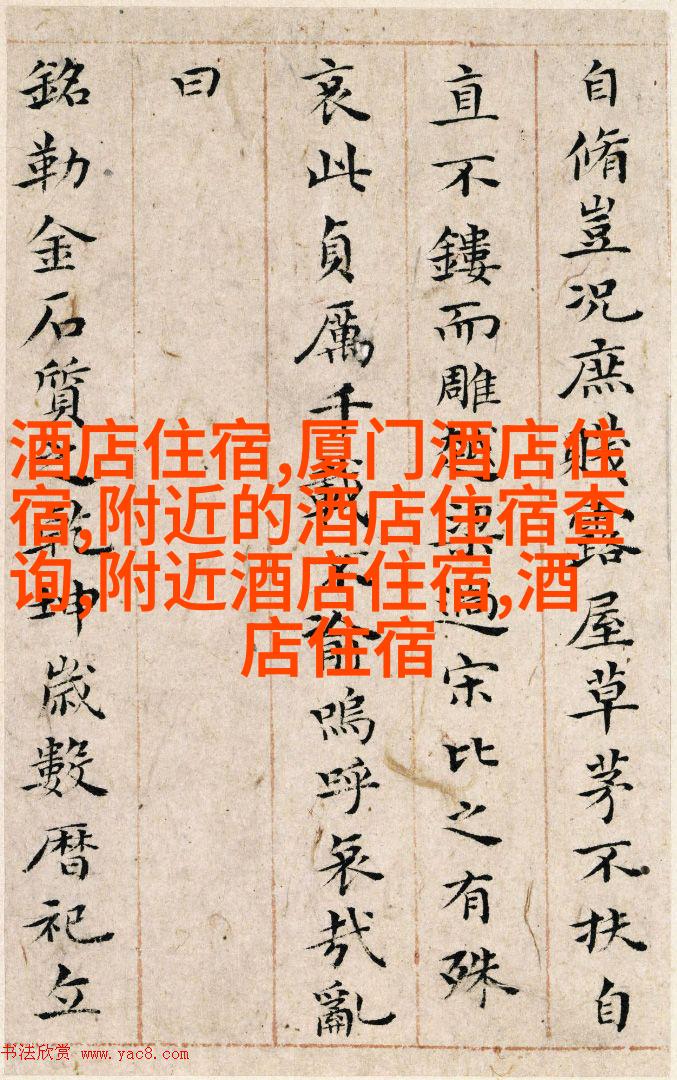 自脩豈況庶賤露屋草茅不扶自
直不鏤而雕越梁過宋比之有殊
哀此貞厲千載不渝嗚呼哀哉亂
曰
銘勒金石質之乾坤歲數曆祀立
酒店住宿,厦门酒店住
宿,附近的酒店住宿查
询,附近酒店住宿,酒
店住宿
书法欣赏 www.yac8.com